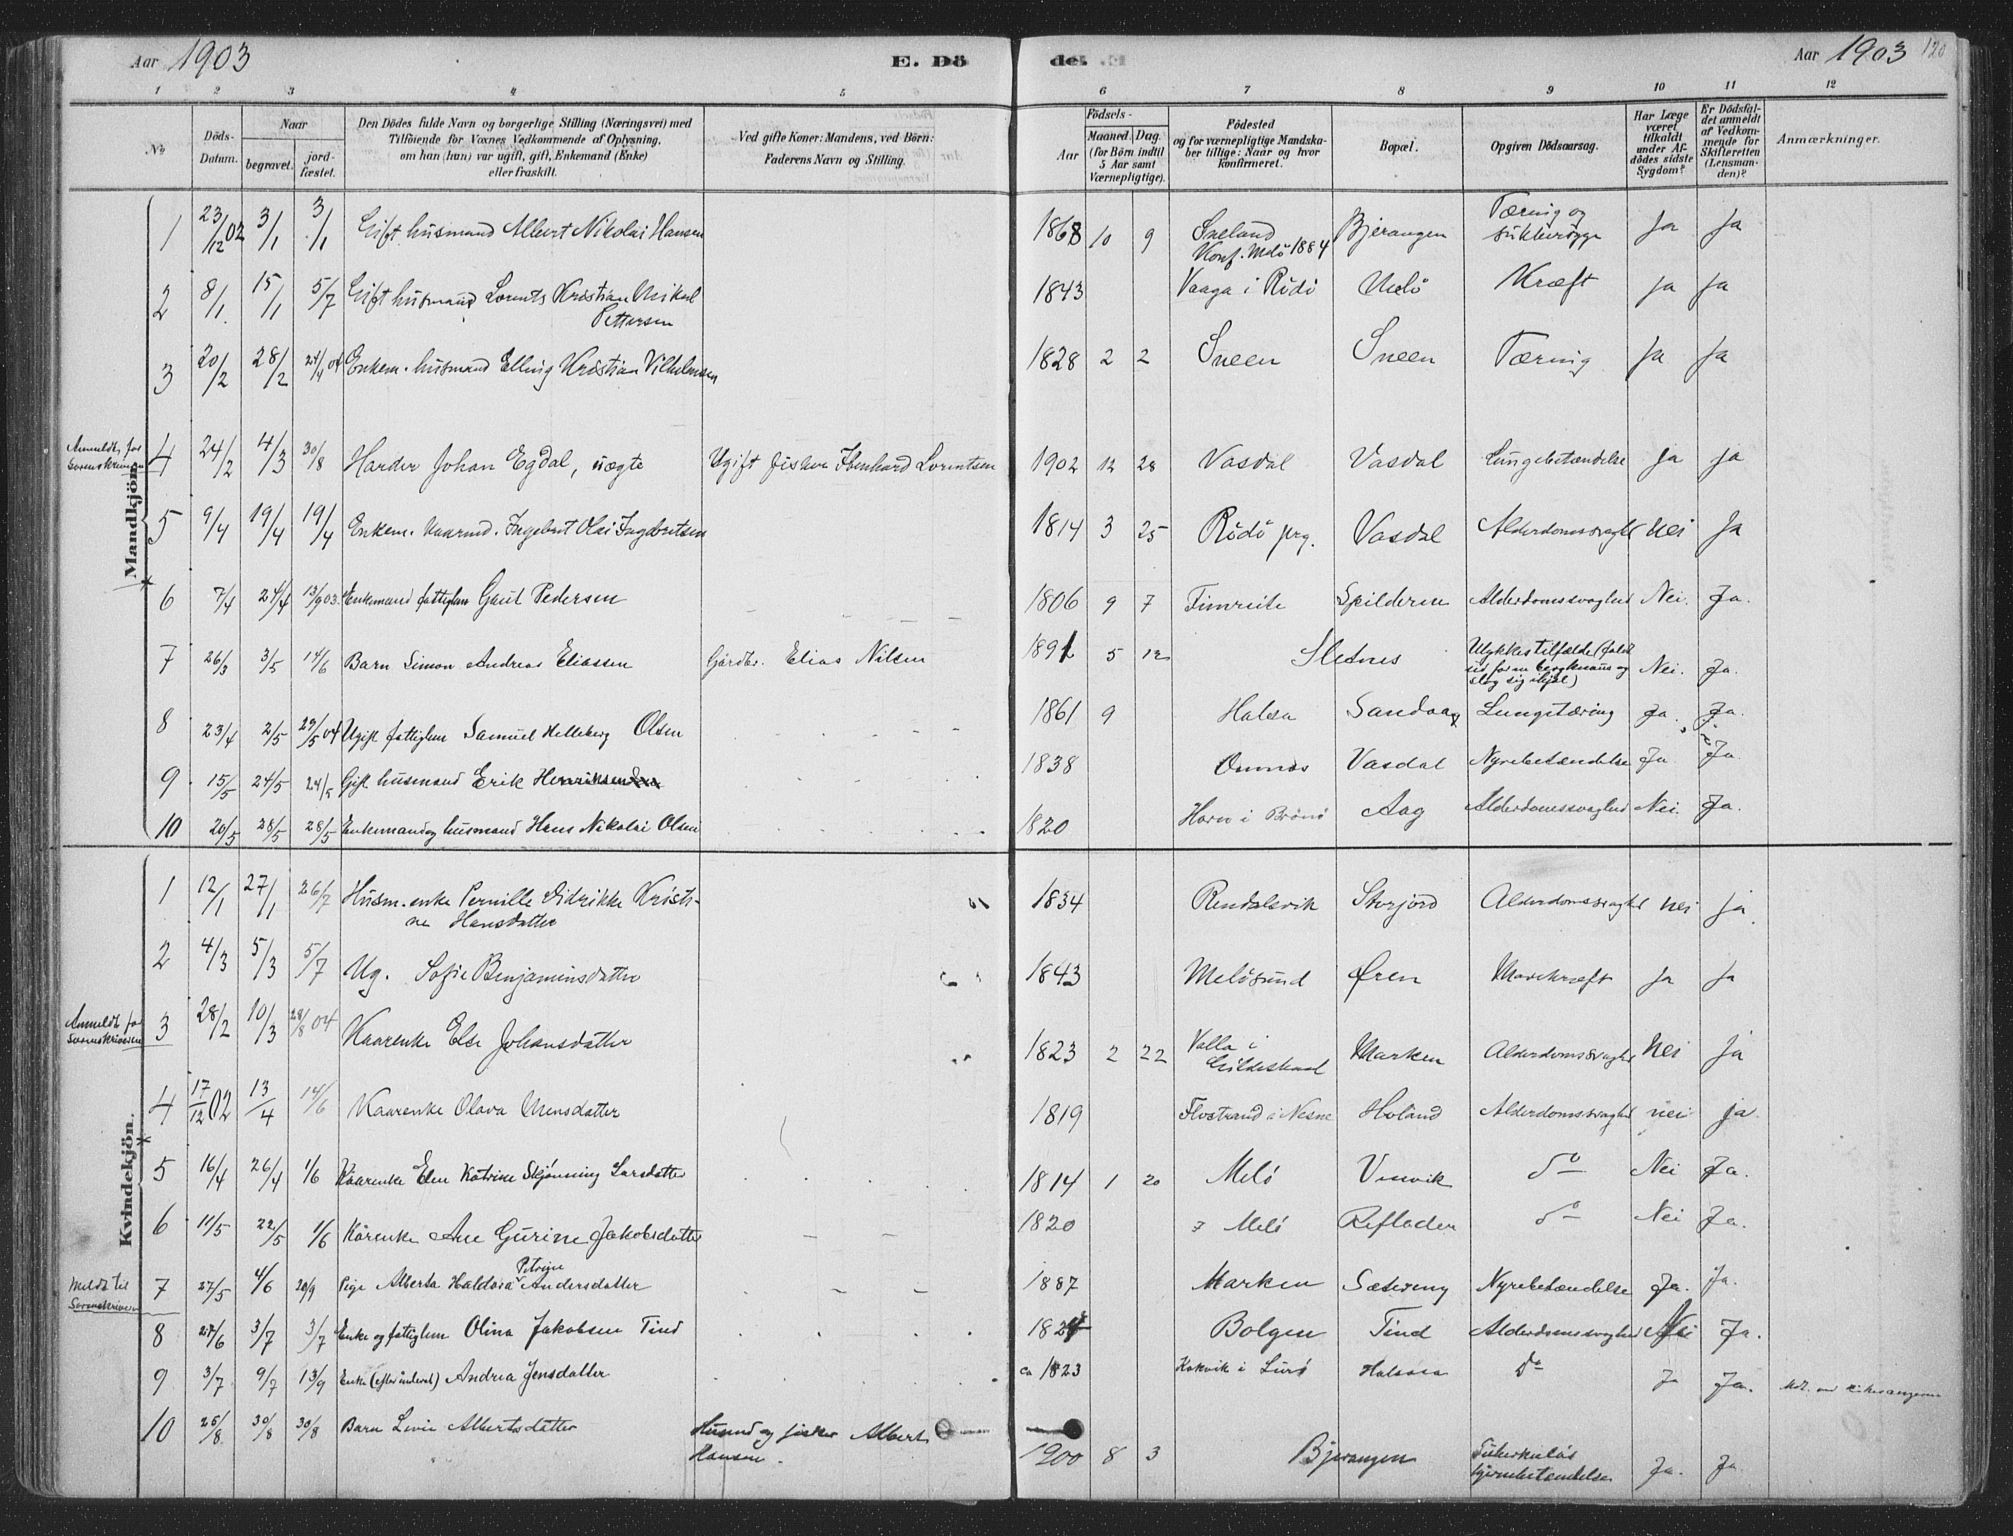 Aar 1903
E. Dö
de.
Aar 1903
120
1 2 3 4 5
6 7 8 9 10 11 12
No
Döds-
Datum.
Naar
begravet.
jord-
fæstet.
Den Dödes fulde Navn og borgerlige Stilling (Næringsvei) med
Tilföiende for Voxnes Vedkommende af Oplysning,
om han (hun) var ugift, gift, Enkemand (Enke)
eller fraskilt.
Ved gifte Koner: Mandens, ved Börn:
Faderens Navn og Stilling.
Födsels-
Aar
Maaned. Dag.
(for Börn indtil
5 Aar samt
Værnepligtige).
Födested
og for værnepligtige Mandska-
ber tillige: Naar og hvor
konfirmeret.
Bopæl.
Opgiven Dödsaarsag.
Har Læge
været
tilkaldt
under Af-
dödes sidste
Sygdom?
Er Dödsfal-
det anmeldt
af Vedkom-
mende for
Skifteretten
(Lensman-
den)?
Anmærkninger.
Mandkjön.
1 23/12 02 3/1 3/1 Gift husmand Albert Nikolai Hansen 1868 10 9 Sneland Konf. Melö 1884 Bjerangen Tæring og sukkersyge Ja Ja
2 8/1 15/1 5/7 Gift husmand Lorents Kristian Mikal Pettersen 1843 Vaaga i Rödö Melö Kræft Ja Ja
3 20/2 28/2 24/4 04 Enkem. husmand Elling Kristian Vilhelmsen 1828 2 2 Sneen Sneen Tæring Ja Ja
Anmeldt for Sorenskriveren
4 24/2 4/3 30/8 Harder Johan Egdal, uægte Ugift fisker Edvenhard Lorentsen 1902 12 28 Vasdal Vasdal Lungebetændelse Ja Ja
5 9/4 19/4 19/4 Enkem. kaarmd. Ingebrt Olai Ingebrtsen 1814 3 25 Rödö prg. Vasdal Alderdomssvaghd nei Ja
6 7/4 24/4 13/9 03. Enkemand fattiglem Gaut Pedersen 1806 9 7 Fimreite Spilderen Alderdomssvaghed Nei. Ja.
7 26/3 3/5 14/6 Barn Simon Andreas Eliassen Gårdbr. Elias Nilsen 1891 5 12 Sletnes Ulykkestilfælde (faldt ud for en bergknaus og slog sig ihjel) Nei. Ja.
8 23/4 2/5 29/5 04 Ugift fattiglem Samuel Helleberg Olsen 1861 9 Halsa Sandaag Lungetæring Ja. Ja.
9 15/5 24/5 24/5 Gift husmand Erik Henriksen 1838 Ommes Vasdal Nyrebetændelse Ja Ja.
10 20/5 28/5 28/5 Enkemand og husmand Hans Nikolai Olsen 1820 Horn i Brönö Aag Alderdomssvaghed Nei. Ja.
Kvindekjön.
1 12/1 27/1 26/7 Husm. enke Pernille Didrikke Kristi-
ne Hansdatter 1834 Rendalsvik Storjord Alderdomssvaghd nei ja.
2 4/3 5/3 5/7 Ug. Sofie Benjaminsdatter 1843 Melösund Øren Mavekræft Ja Ja
Anmeldt for Sorenskriveren
3 28/2 10/3 28/8 04 Kaarenke Else Johansdatter 1823 2 22 Valla i Gildeskaal Marken Alderdomssvaghd Nei Ja
4 17/12 02 13/4 14/6 Kaarenke Olava Monsdatter 1819 Flostrand i Nesne Holand Alderdomssvaghed nei ja
5 16/4 26/4 1/6 Kaarenke Elen Katrine Skjønning Larsdatter 1814 1 20 Melö Vesvik do Nei Ja.
6 11/5 22/5 1/6 Kårenke Ane Gurine Jakobsdatter 1820 Melö Reflader do Nei Ja.
Meldt til Sorenskriveren
7 27/5 4/6 20/9 Pige Alberta Haldora Petrine Andersdatter 1887 Marken Sætering Nyrebetændelse Ja. Ja.
8 24/6 3/7 3/7 Enke og fattiglem Olina Jakobsen Tind 1824 Bolgen Tind Alderdomssvaghed Nei Ja.
9 3/7 9/7 13/9 Enke Andrea Jensdatter ca 1823 Kokvik i Lurö Halsosa Do Ja Ja.
10 25/8 30/8 30/8 Barn Livie Albertsdatter Husmd og fisker Albert Hansen. 1900 8 3 Bjerangen Tuberkulös hjernebetændelse Ja. Ja.